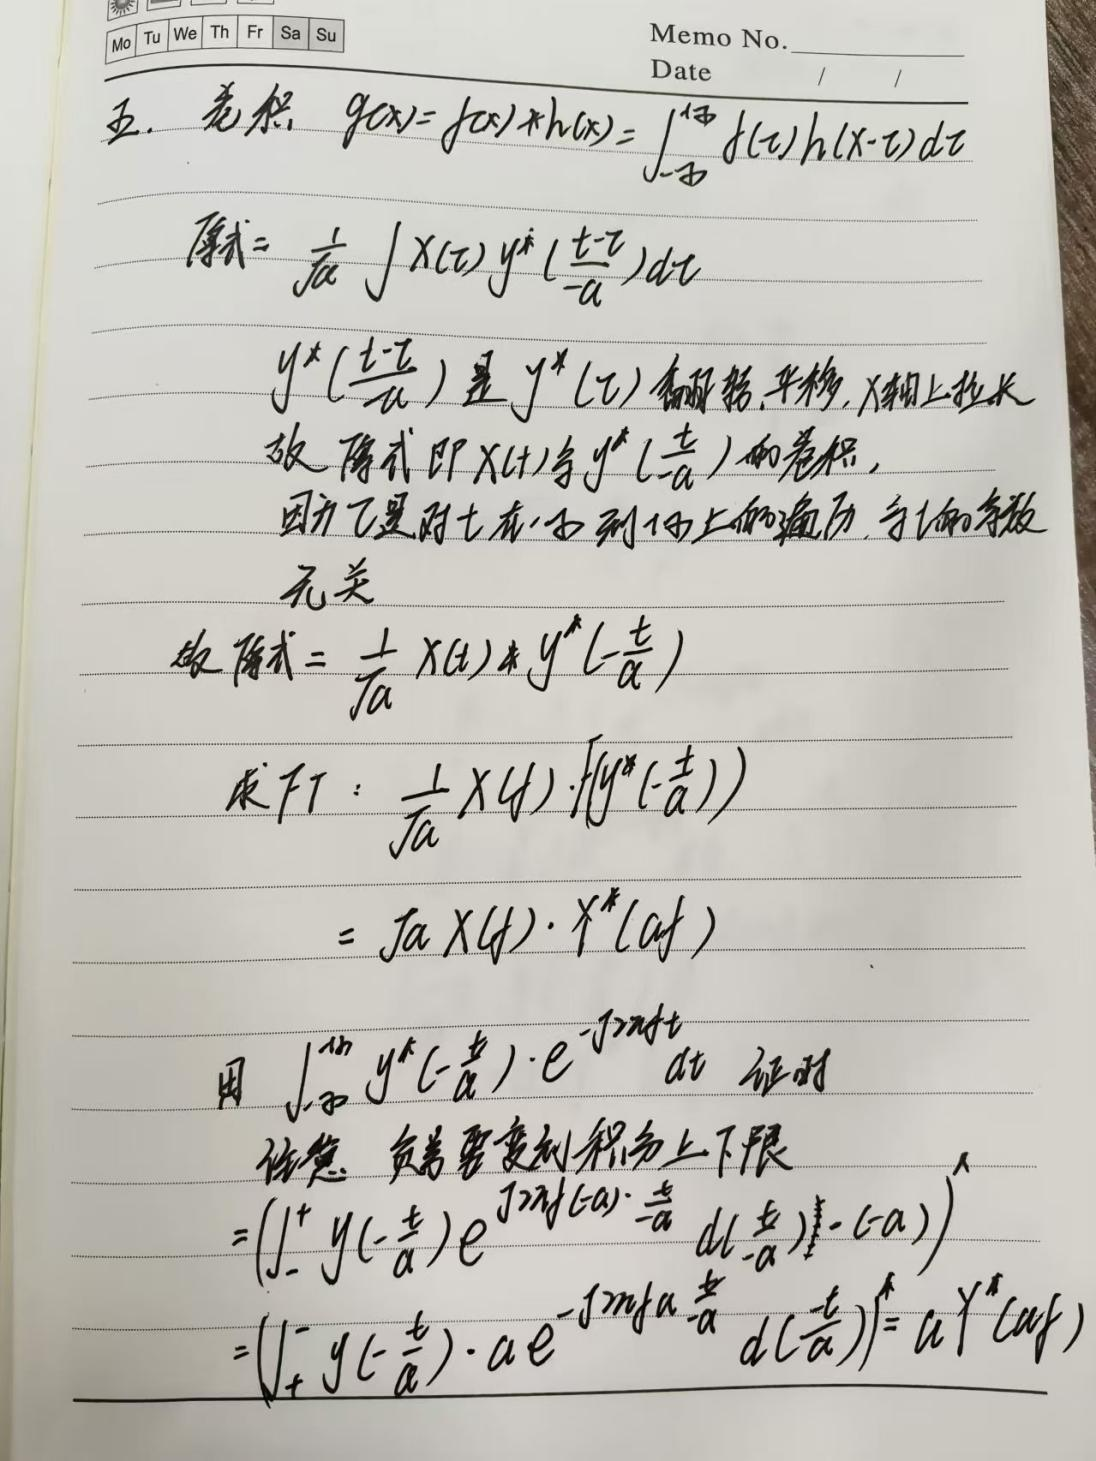 Mo Tu We Th Fr Sa Su
Memo No.
Date / /
五. 卷积 g(x)=f(x)*h(x)=∫_{-∞}^{+∞} f(τ)h(x-τ)dτ
原式= 1/√a ∫ x(τ) y*((t-τ)/-a)dτ
y*((t-τ)/-a) 是 y*(τ) 翻转,平移,x轴上拉长
故 原式即 x(t)与y*(t/-a)的卷积,
因为τ是对t在-∞到+∞上的遍历,与t的系数
无关
故原式= 1/√a x(t)*y*(-t/a)
求FT: 1/√a X(f)·F(y*(-t/a))
= √a X(f)·Y*(af)
用 ∫_{-∞}^{+∞} y*(-t/a)·e^{-j2πft} dt 证时
注意 负号要变到积分上下限
=(∫_-^+ y(-t/a) e^{j2πf(-a)·t/-a} d(t/-a)·(-a))*
=(∫_+^- y(-t/a)·a e^{-j2πfa t/-a} d(-t/a))*= aY*(af)